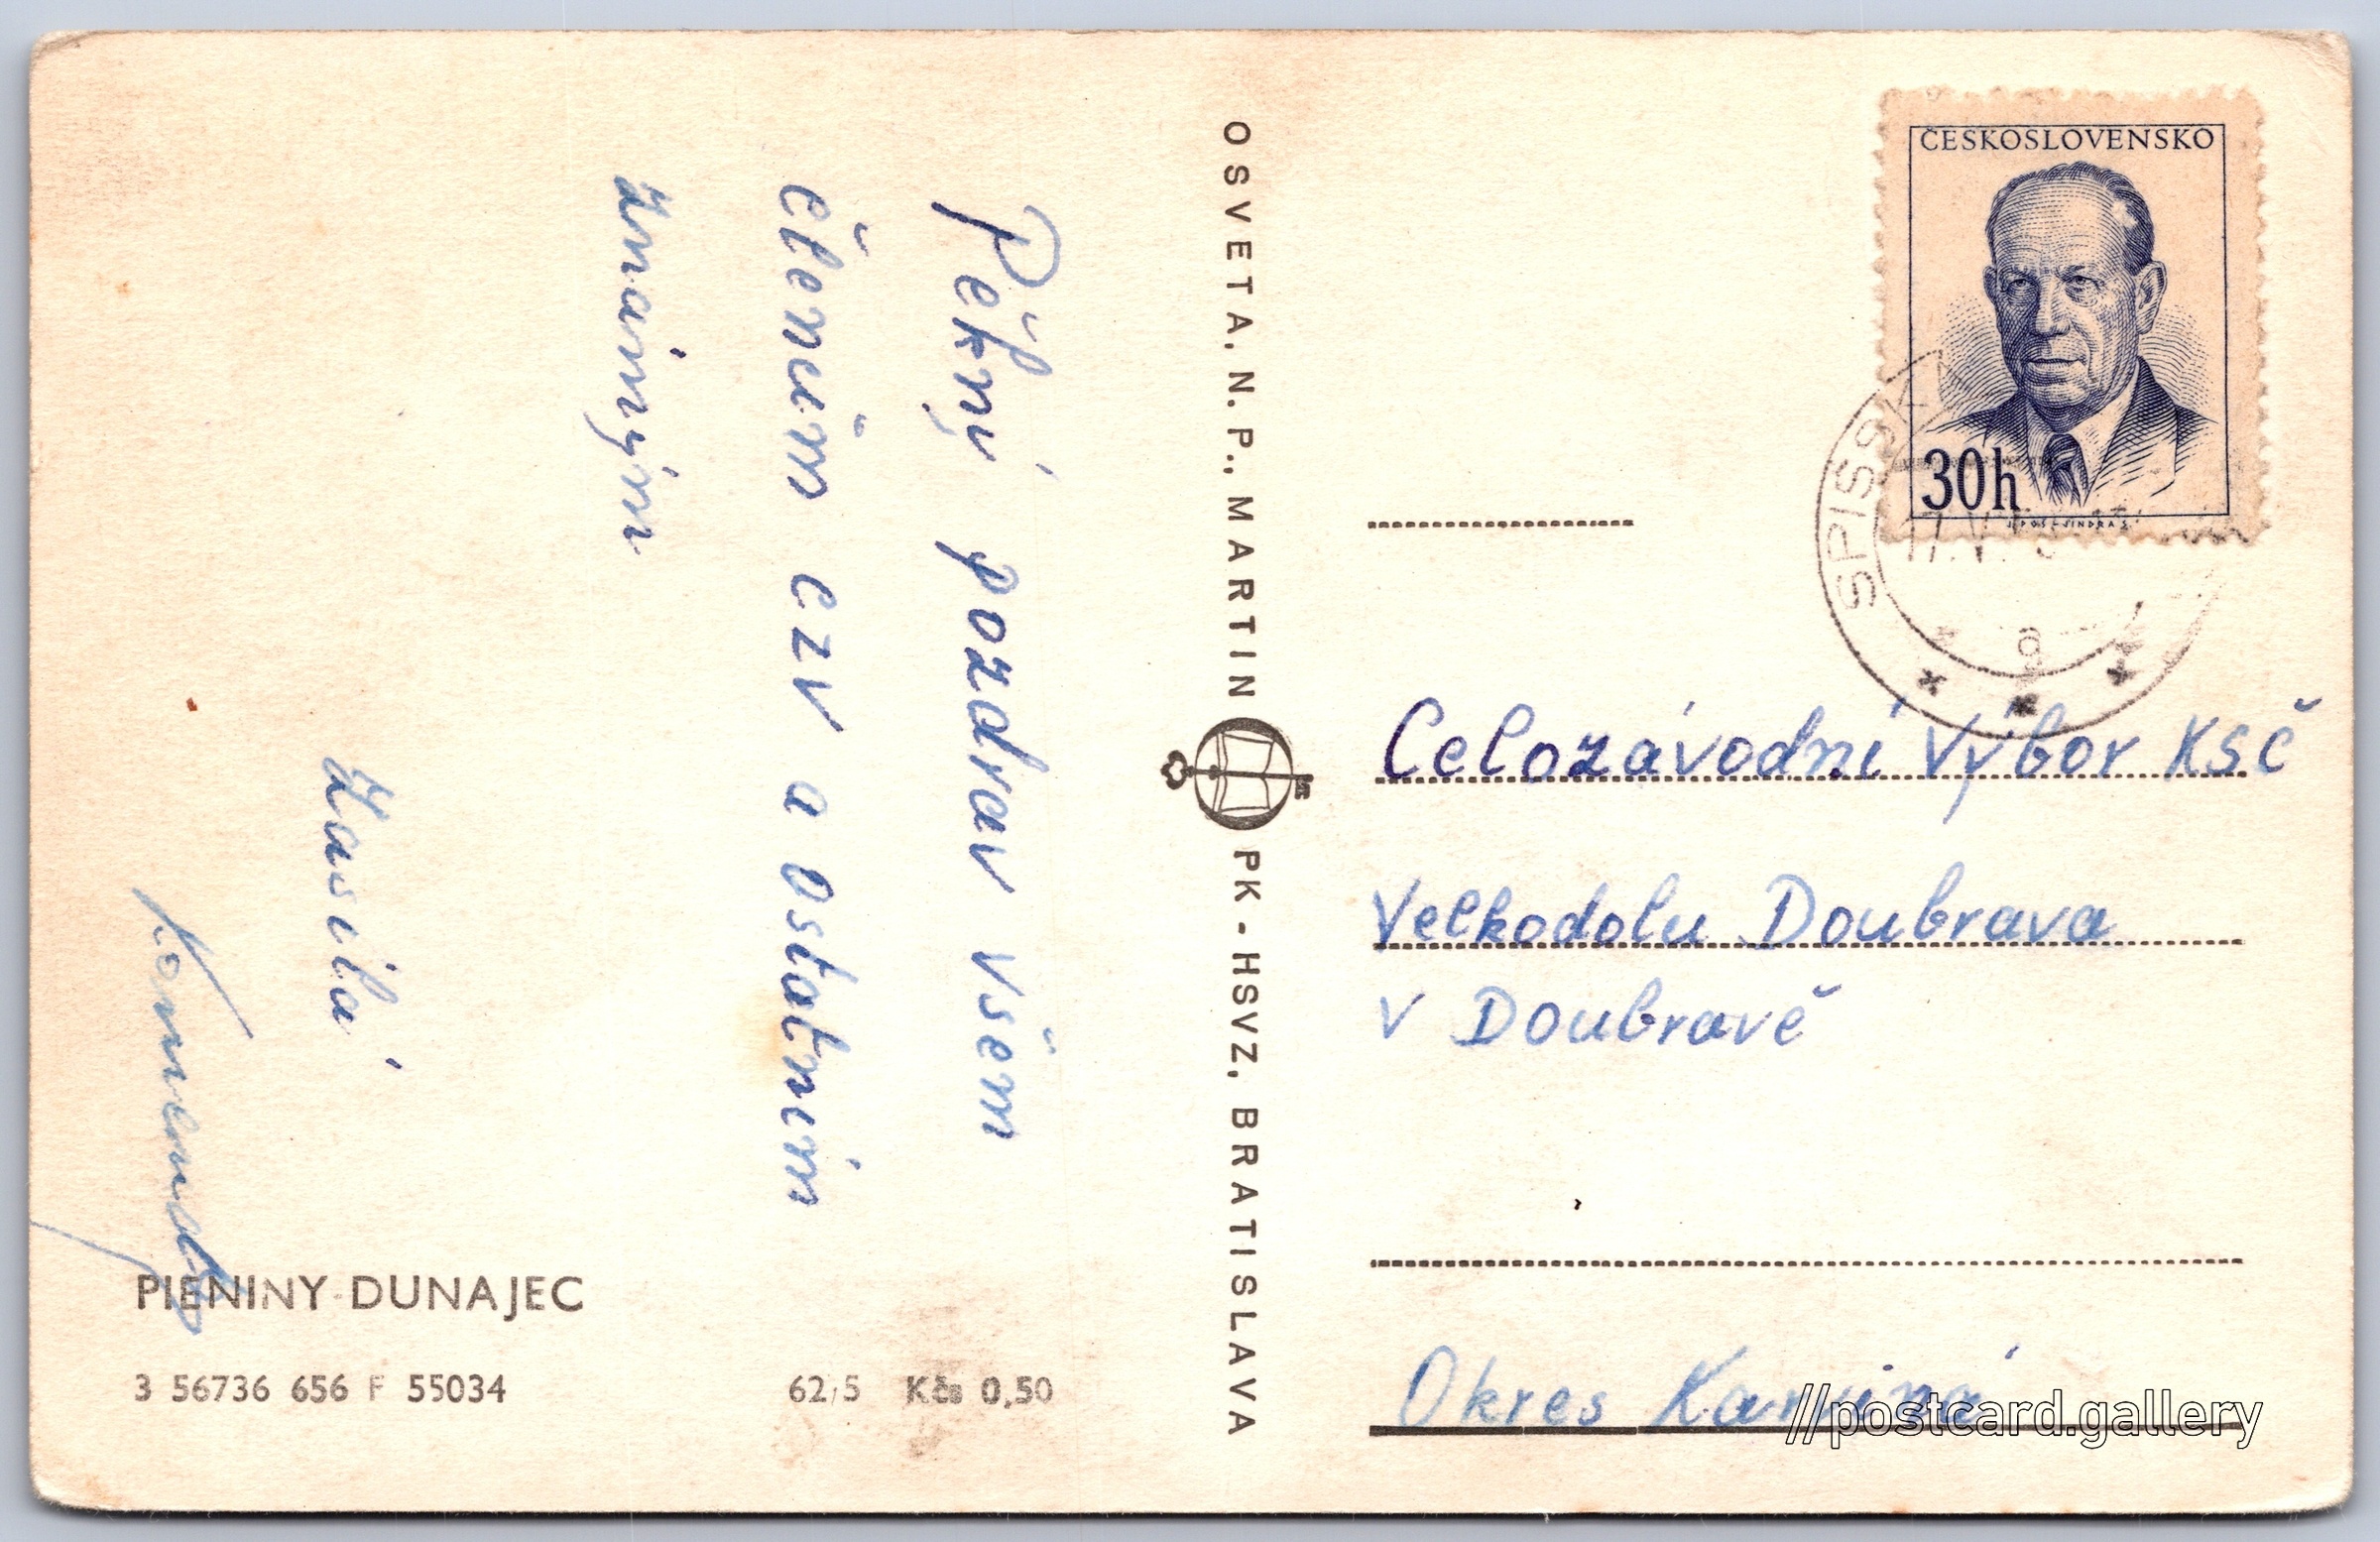 Pěkný pozdrav všem
členům CZV a ostatním
známým
Zasílá
PIENINY-DUNAJEC
3 56736 656 F 55034
62/5 Kčs 0,50
OSVETA, N. P., MARTIN
PK - HSVZ, BRATISLAVA
ČESKOSLOVENSKO
30h
SPIŠSKÁ
a
Celozávodní Výbor KSČ
Velkodolu Doubrava
v Doubravě
Okres Karviná
//postcard.gallery